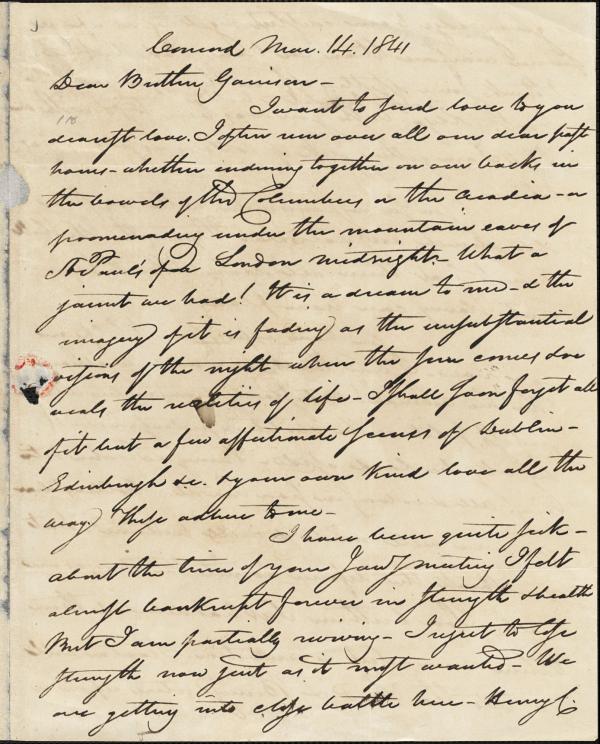 Concord Mar. 14. 1841
Dear Brother Garrison –
I want to send love to you
118
dearest love. I often run over all our dear past
hours – whether reclining together on our backs in
the bowels of the Columbus or the Acadia – or
promenading under the mountain eaves of
St Paul's of a London midnight – What a
jaunt we had! It is a dream to me – & the
imagery of it is fading as the unsubstantial
visions of the night when the sun comes &
reveals the realities of life – I shall soon forget all
of it but a few affectionate scenes of Dublin –
Edinburgh &c. & your own kind love all the
way. These adhere to me –
I have been quite sick –
about the time of your meeting I felt
almost bankrupt forever in strength & health
But I am partially reviving – I regret to lose
strength now just as it most wanted – We
are getting into close battle here – Henry C.